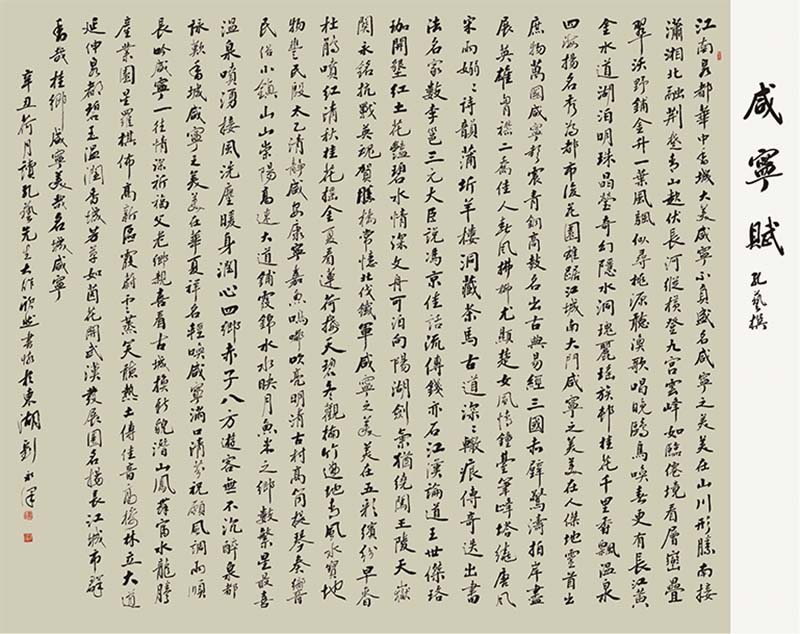 咸寧賦 孔藝撰
江南泉都華中香城大美咸寧不負盛名咸寧之美美在山川形勝南接
瀟湘北融荆楚青山起伏長河縱橫登九宮雲峰如臨僊境看層巒疊
翠沃野鋪金升一葉風颿似尋桃源聽漁歌唱晚鷗鳥喚春更有長江黃
金水道湖泊明珠晶瑩奇幻隱水洞瑰麗瑶族邨桂花千里香飄溫泉
四海揚名秀為都市後花園雄踞江城南大門咸寧之美美在人傑地靈首出
庶物萬國咸寧彩震青銅商鼓名出古典易經三國赤壁驚濤拍岸盡
展英雄胷襟二喬佳人春風拂柳尤顯楚女風情鍾臺筆峰塔繞唐風
宋雨嫋嫋詩韻蒲圻羊樓洞藏茶馬古道深深轍痕傳奇迭出書
法名家數李邕三元大臣說馮京佳話流傳錢亦石江漢論道王世傑珞
珈開墾紅土花豔碧水情深文舟可泊向陽湖劍氣猶繞闖王陵天嶽
関永銘抗戰英魂賀勝橋常憶北伐鐵軍咸寧之美美在五彩繽紛早春
杜鵑噴紅清秋桂花摇金夏看蓮荷接天碧冬觀楠竹遍地青風水寶地
物豐民殷太乙清静咸安康寧嘉魚嗚嘟吹亮明清古村高筒提琴奏響
民俗小鎮山山崇陽高速大道鋪霞錦水水映月魚米之鄉數繁星最喜
温泉噴湧接風洗塵暖身潤心四鄉赤子八方遊客無不沉醉泉都
詠歎香城咸寧之美美在華夏祥名輕喚咸寧滿口清芬祝願風調雨順
長吟咸寧一往情深祈福父老鄉親喜看古城換新貌潛山鳳舞富水龍騰
產業園星羅棋佈高新區霞蔚雲蒸笑聽熱土傳佳音高樓林立大道
延伸泉都碧玉温潤香城芳草如茵花開武漢發展圈名揚長江城市群
香哉桂鄉咸寧美哉名城咸寧
辛丑荷月讀孔藝先生大作欣然書懷於東湖劉永澤